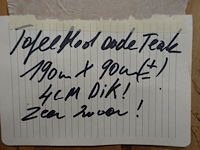 Tafelblad oude Teak
190cm X 90cm (±)
4cm DiK!
Zeer zwaar!